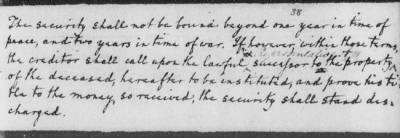 38
The security shall not be bound beyond one year in time of
peace, and two years in time of war. If however, within those terms,
the creditor shall call upon the lawful successor to the property
of the deceased, hereafter to be instituted, and prove his ti-
tle to the money, so received, the security shall stand dis-
charged.